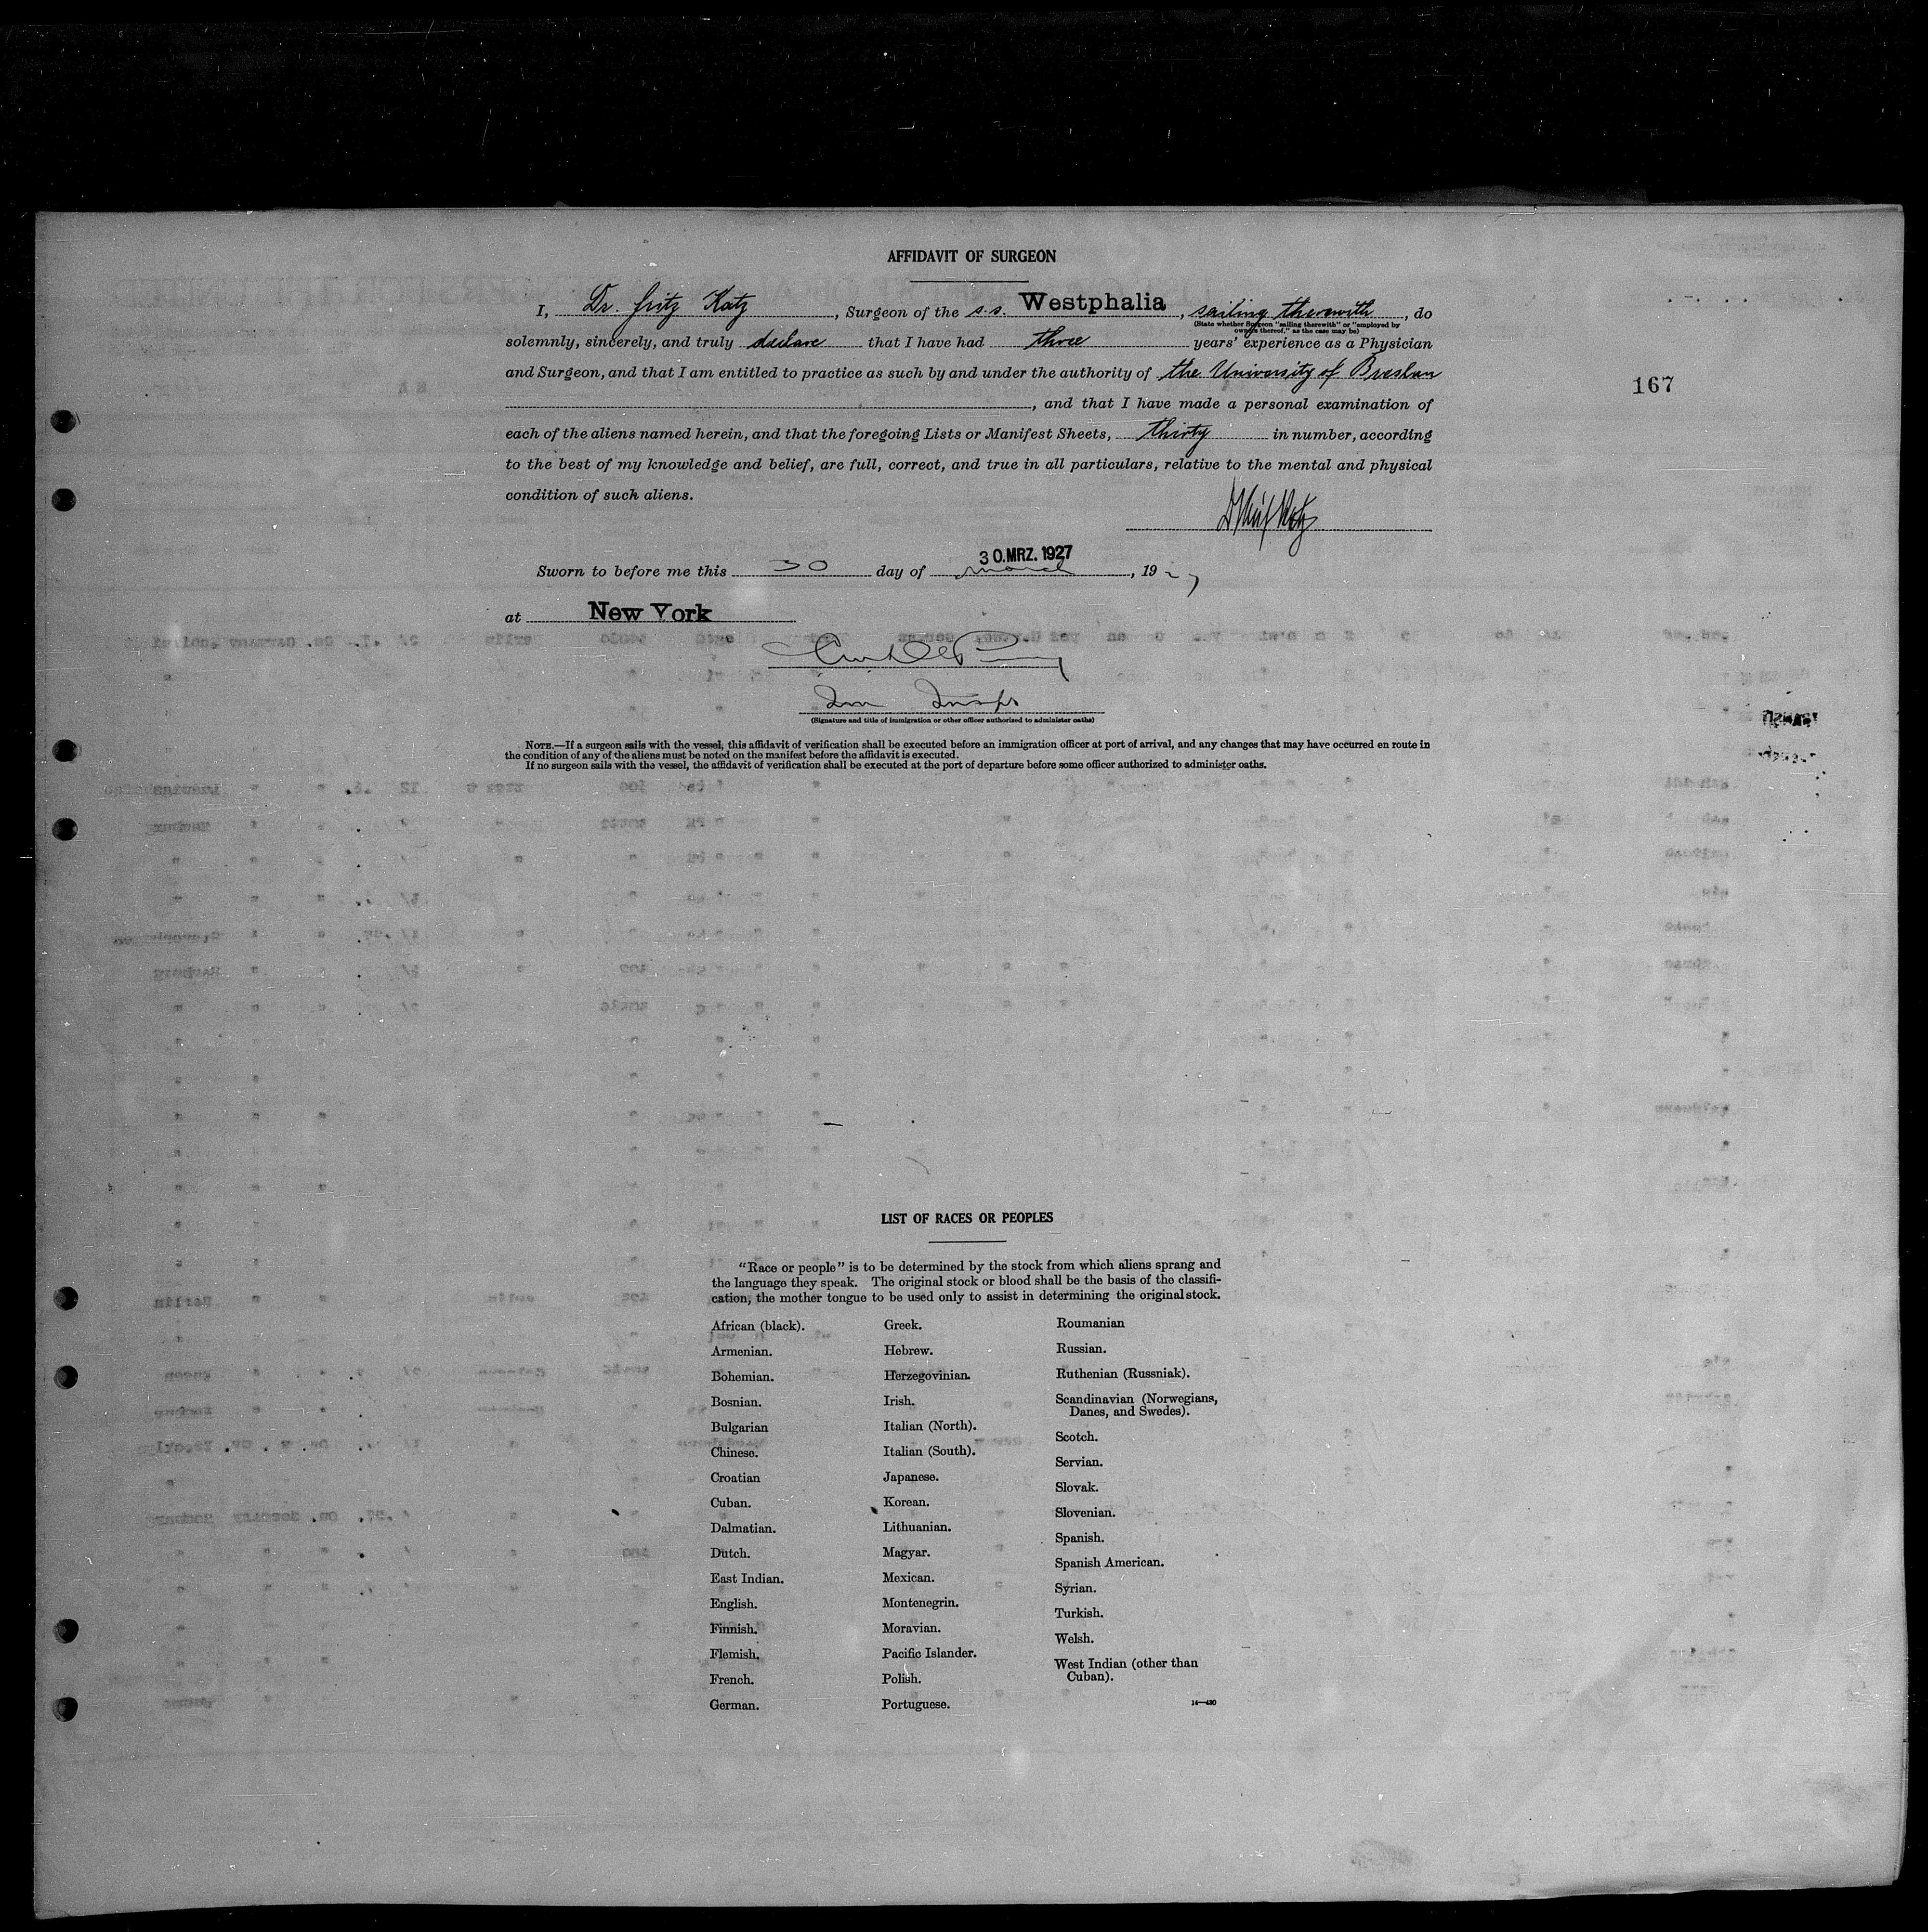 AFFIDAVIT OF SURGEON
I, Dr. Fritz Katz, Surgeon of the s.s. Westphalia, sailing therewith, do
(State whether Surgeon "sailing therewith" or "employed by
owners thereof," as the case may be)
solemnly, sincerely, and truly declare that I have had three years' experience as a Physician
and Surgeon, and that I am entitled to practice as such by and under the authority of the University of Breslau
167
, and that I have made a personal examination of
each of the aliens named herein, and that the foregoing Lists or Manifest Sheets, thirty in number, according
to the best of my knowledge and belief, are full, correct, and true in all particulars, relative to the mental and physical
condition of such aliens.
30.MRZ.1927
Sworn to before me this 30 day of March, 1927
at New York
Imm Inspr
(Signature and title of immigration or other officer authorized to administer oaths)
NOTE.—If a surgeon sails with the vessel, this affidavit of verification shall be executed before an immigration officer at port of arrival, and any changes that may have occurred en route in
the condition of any of the aliens must be noted on the manifest before the affidavit is executed.
If no surgeon sails with the vessel, the affidavit of verification shall be executed at the port of departure before some officer authorized to administer oaths.
LIST OF RACES OR PEOPLES
"Race or people" is to be determined by the stock from which aliens sprang and
the language they speak. The original stock or blood shall be the basis of the classifi-
cation, the mother tongue to be used only to assist in determining the original stock.
African (black).
Armenian.
Bohemian.
Bosnian.
Bulgarian
Chinese.
Croatian
Cuban.
Dalmatian.
Dutch.
East Indian.
English.
Finnish.
Flemish.
French.
German.
Greek.
Hebrew.
Herzegovinian.
Irish.
Italian (North).
Italian (South).
Japanese.
Korean.
Lithuanian.
Magyar.
Mexican.
Montenegrin.
Moravian.
Pacific Islander.
Polish.
Portuguese.
Roumanian
Russian.
Ruthenian (Russniak).
Scandinavian (Norwegians,
Danes, and Swedes).
Scotch.
Servian.
Slovak.
Slovenian.
Spanish.
Spanish American.
Syrian.
Turkish.
Welsh.
West Indian (other than
Cuban).
14—430